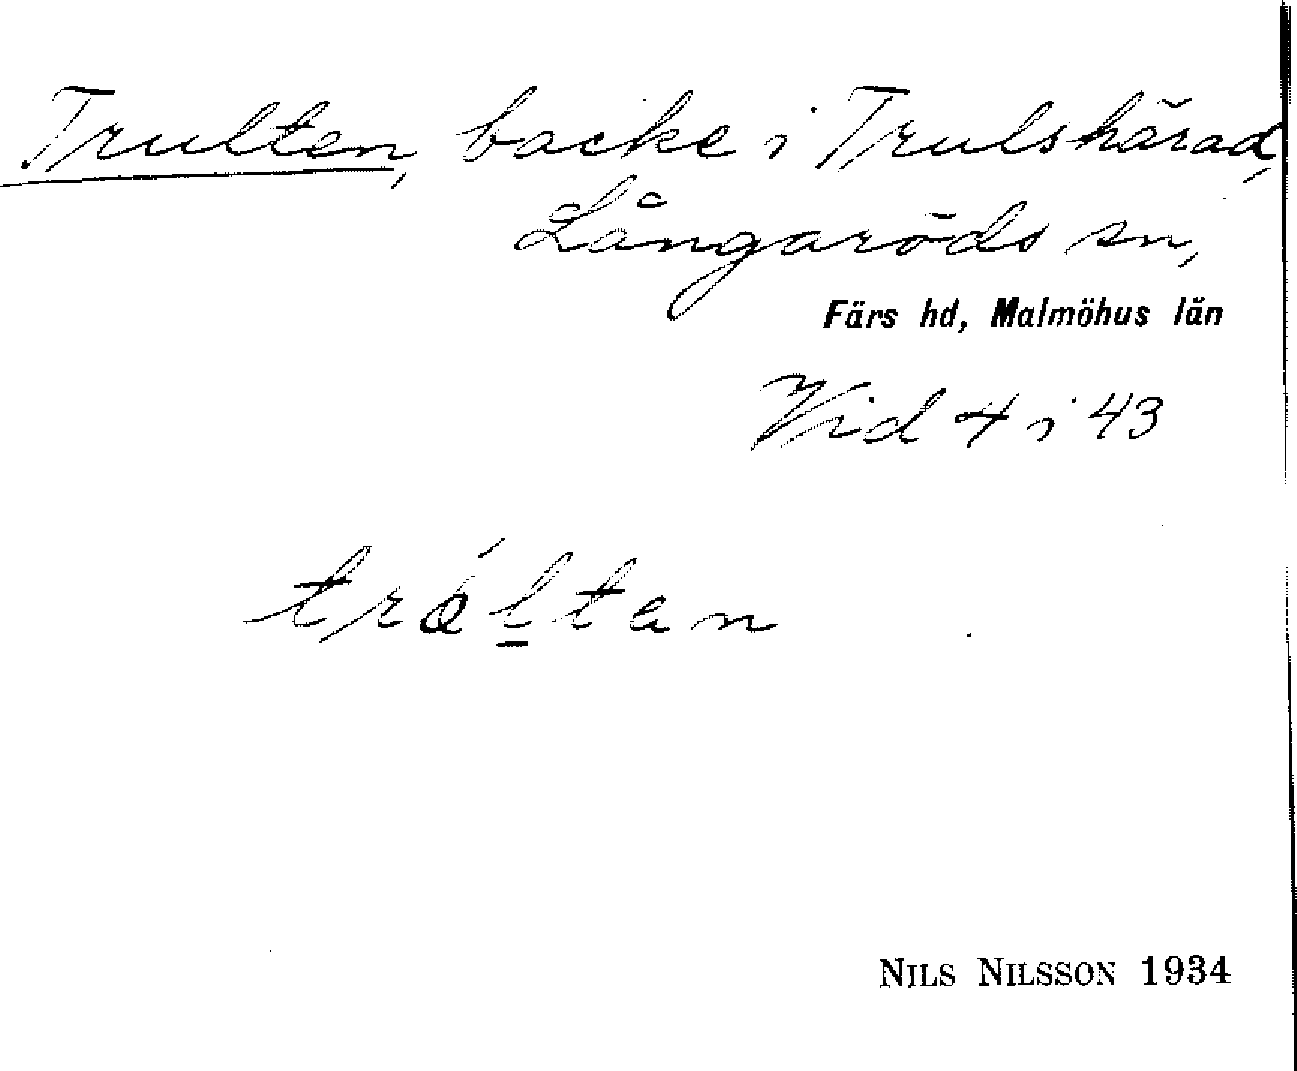 Trulten, backe i Trulshärad,
Långaröds sn,
Färs hd, Malmöhus län
Vid 4 i 43
NILS NILSSON 1934